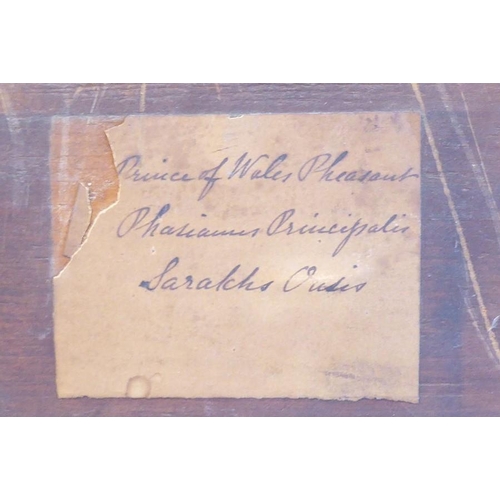 Prince of Wales Pheasant
Phasianus Principalis
Sarakhs Oasis